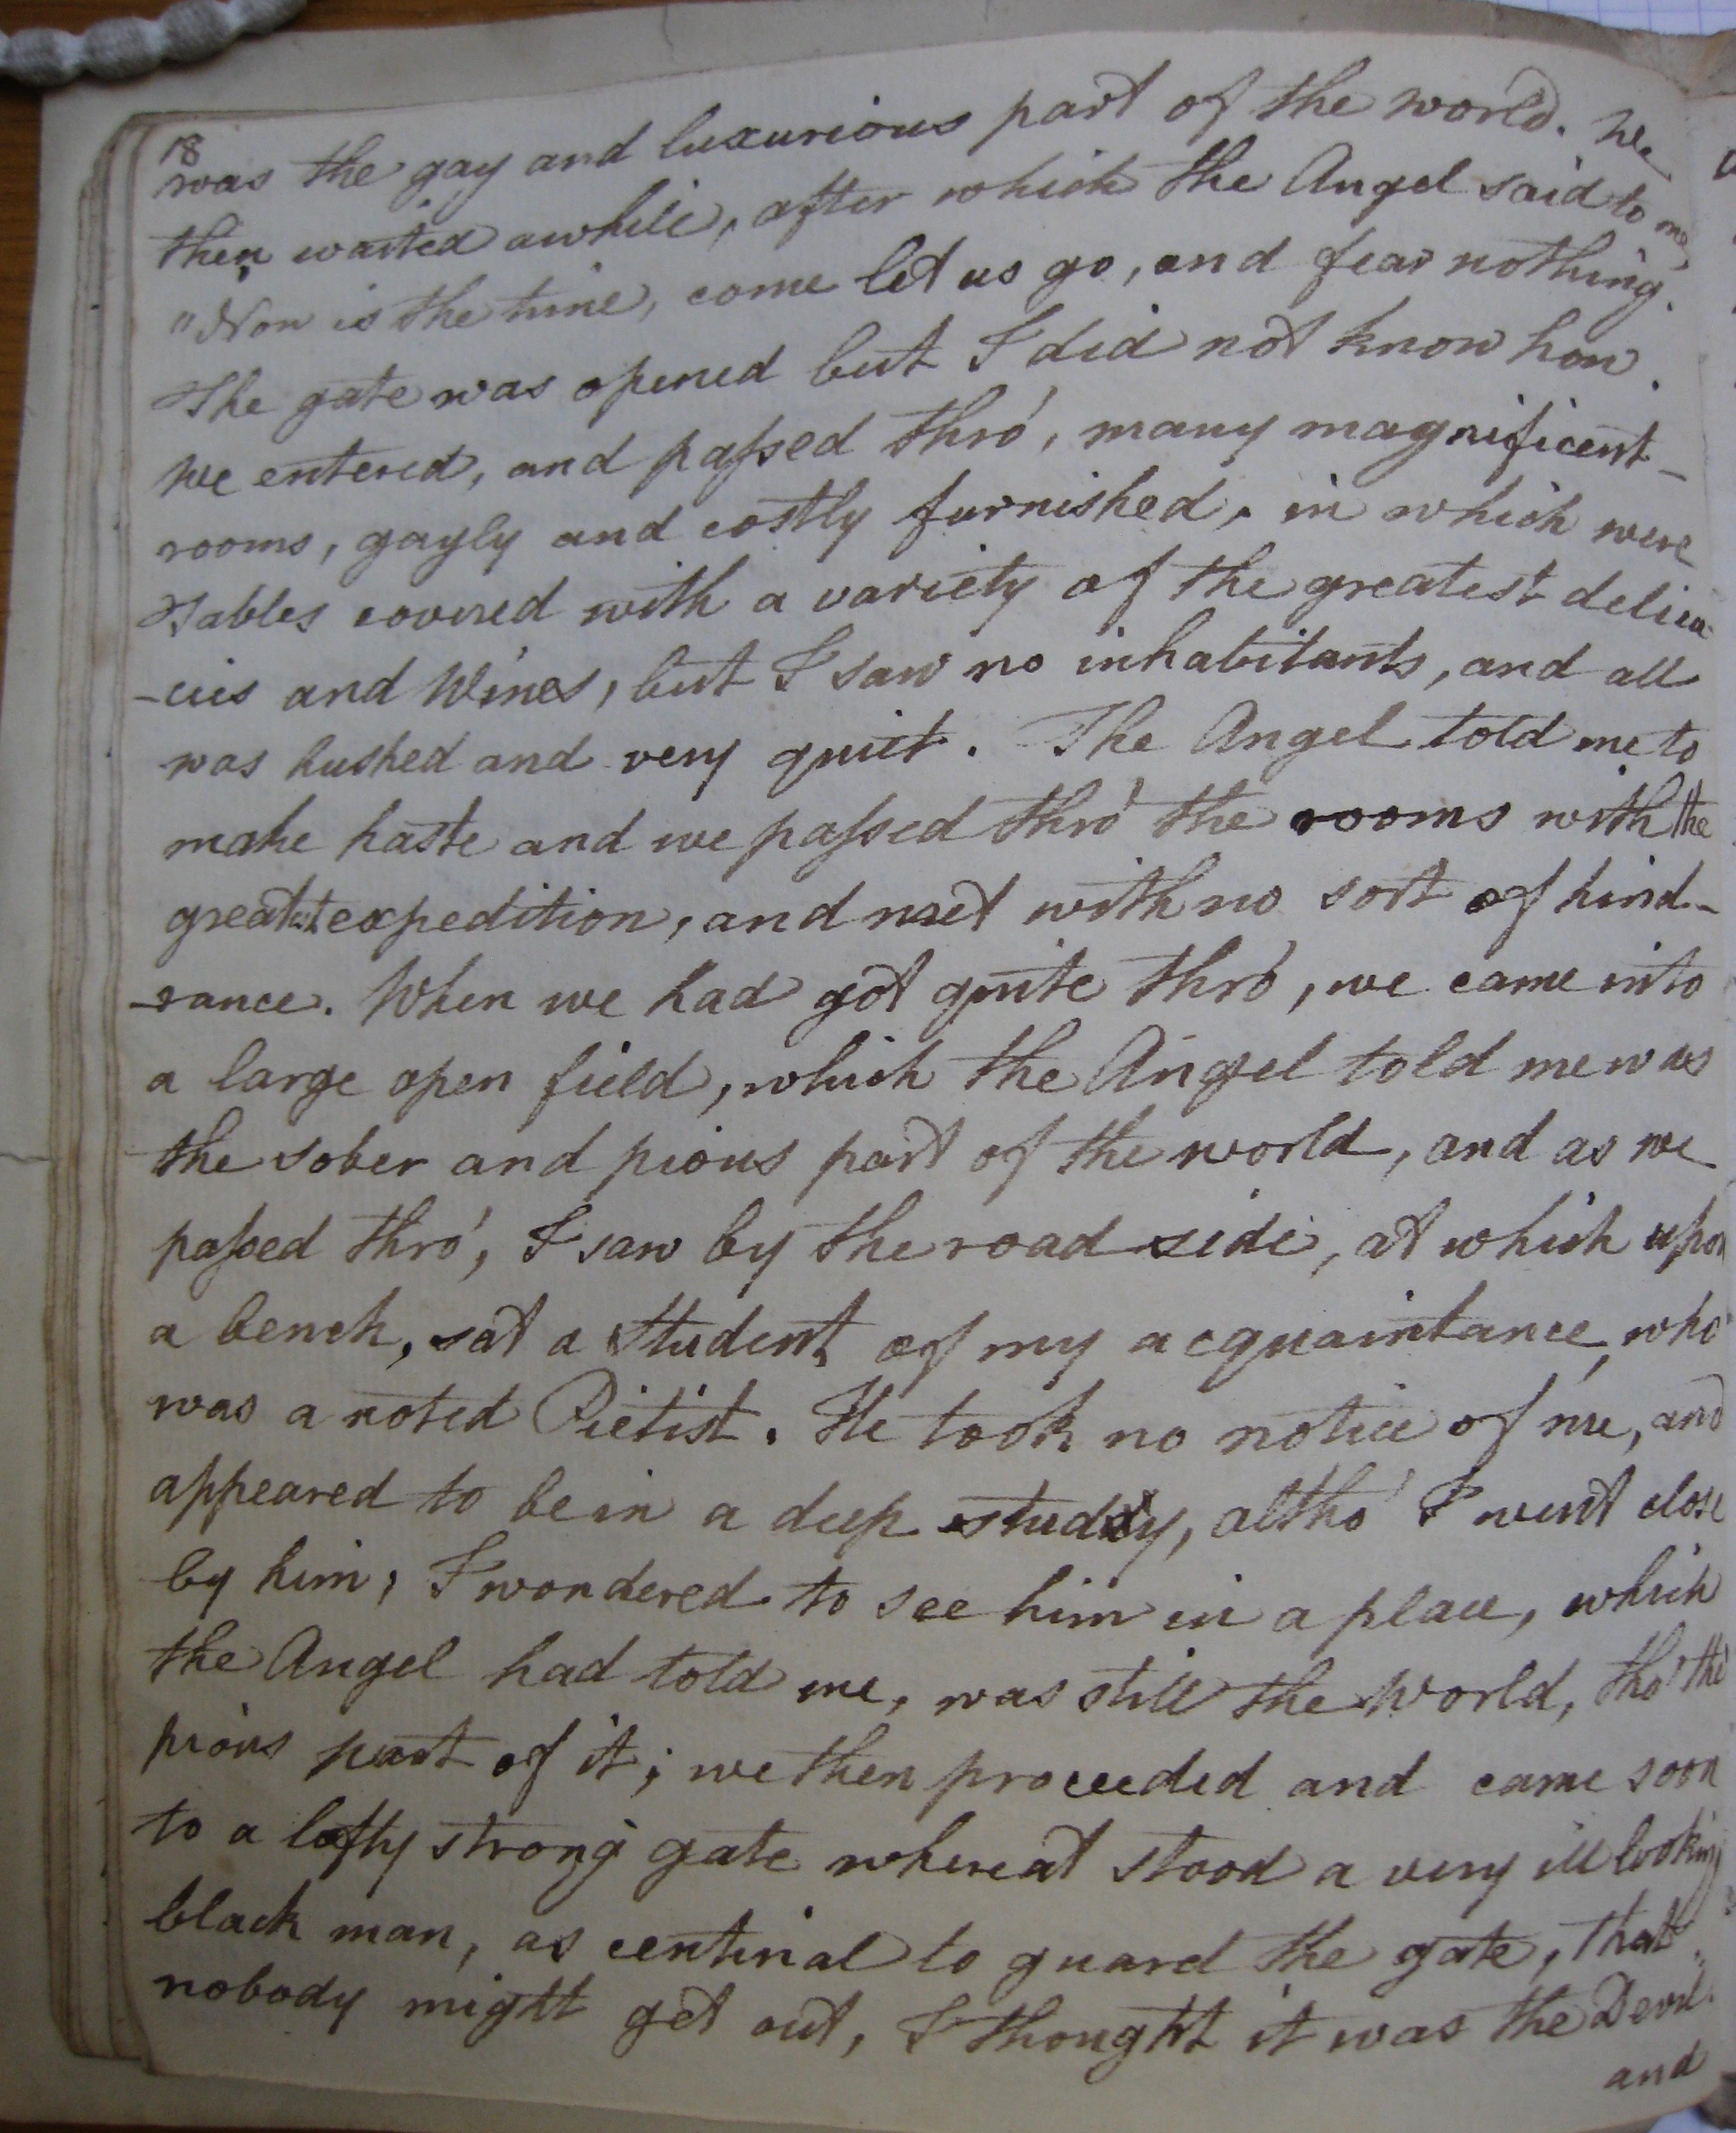 18
was the gay and luxurious part of the world. We
then waited awhile, after which the Angel said to me
"Now is the time, come let us go, and fear nothing.
The gate was opened but I did not know how.
We entered, and paſsed thro', many magnificent
rooms, gayly and costly furnished, in which were
Tables covered with a variety of the greatest delica
-cies and Wines, but I saw no inhabitants, and all
was hushed and very quiet. The Angel told me to
make haste and we paſsed thro' the rooms with the
greatest expedition, and met with no sort of hind-
-rance. When we had got quite thro', we came into
a large open field, which the Angel told me was
the sober and pious part of the world, and as we
paſsed thro', I saw by the road side, at which upon
a bench, sat a Student of my acquaintance, who
was a noted Pietist. He took no notice of me, and
appeared to be in a deep study, altho' I went close
by him, I wondered to see him in a place, which
the Angel had told me, was still the World, tho' the
pious part of it; we then proceeded and came soon
to a lofty strong gate whereat stood a very ill looking
black man, as centinal to guard the gate, that
nobody might get out, I thought it was the Devil.
and